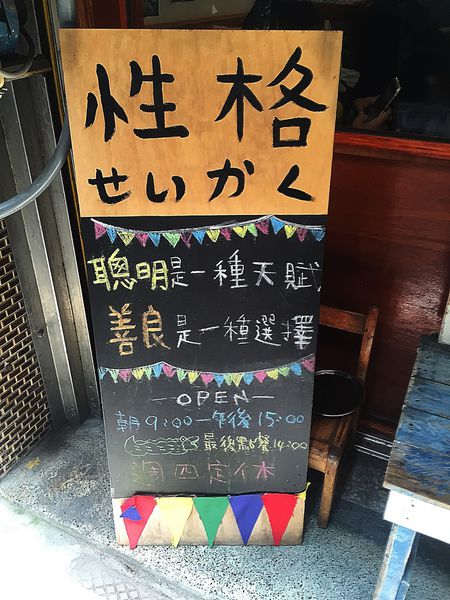 性格
せいかく
聰明是一種天賦
善良是一種選擇
—OPEN—
朝9:00—午後15:00
最後點餐14:00
週四定休